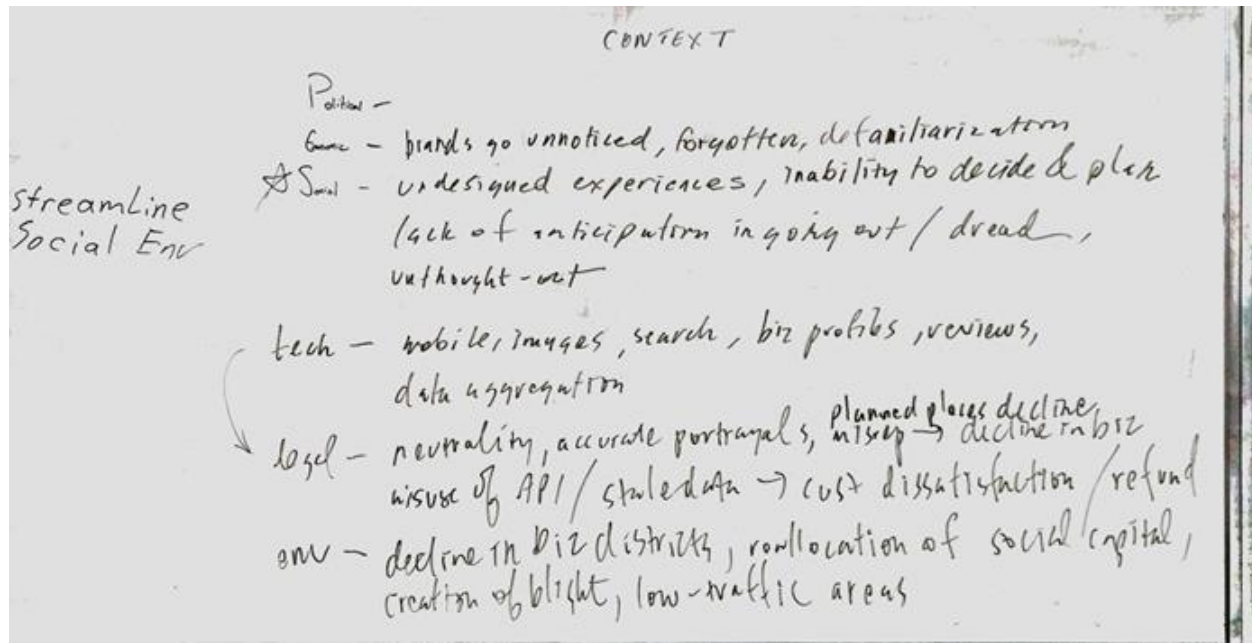 CONTEXT
Political -
Economic - brands go unnoticed, forgotten, defamiliarization
☆ Social - undesigned experiences, inability to decide & plan
lack of anticipation in going out / dread,
unthought-out
streamline
Social Env
tech - mobile, images, search, biz profiles, reviews,
data aggregation
planned places decline,
legal - neutrality, accurate portrayals, misrep → decline in biz
misuse of API / stale data → cust dissatisfaction / refund
env - decline in biz districts, reallocation of social capital,
creation of blight, low-traffic areas